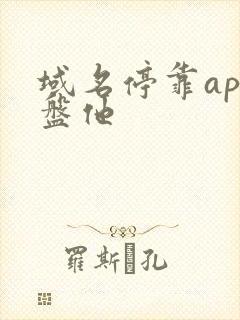 域名停靠ap
盤他
羅斯 孔